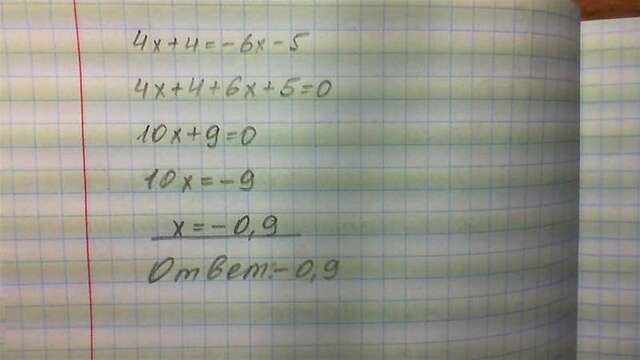 4x+4=-6x-5
4x+4+6x+5=0
10x+9=0
10x=-9
x=-0,9
Ответ:-0,9